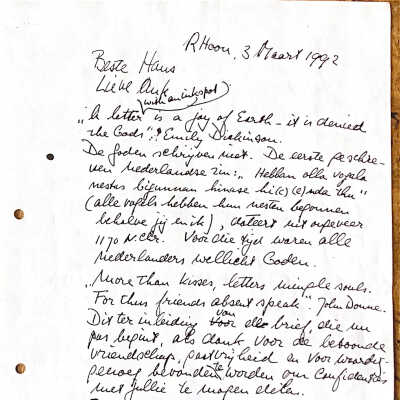 RHoon, 3 Maart 1992
Beste Hans
Lieve Ank
(with an inkspot)
"A letter is a joy of Earth - it is denied
the Gods": Emily Dickinson.
De Goden schrijven niet. De eerste geschre-
ven Nederlandse zin: "Hebban olla vogala
nestas bigunnan hinase hi(c)(e)nda thu"
(alle vogels hebben hun nesten begonnen
behalve jij en ik), dateert uit ongeveer
1170 N.Chr. Voor die tijd waren alle
Nederlanders wellicht Goden.
"More than kisses, letters mingle souls.
For thus friends absent speak" John Donne.
Dit ter inleiding van de brief, die nu
pas begint, als dank voor de betoonde
vriendschap, gastvrijheid en voor waardig
genoeg bevonden te worden om Confidenties
met jullie te mogen delen.